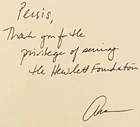 Persis,
Thank you for the
privilege of serving
the Hewlett Foundation